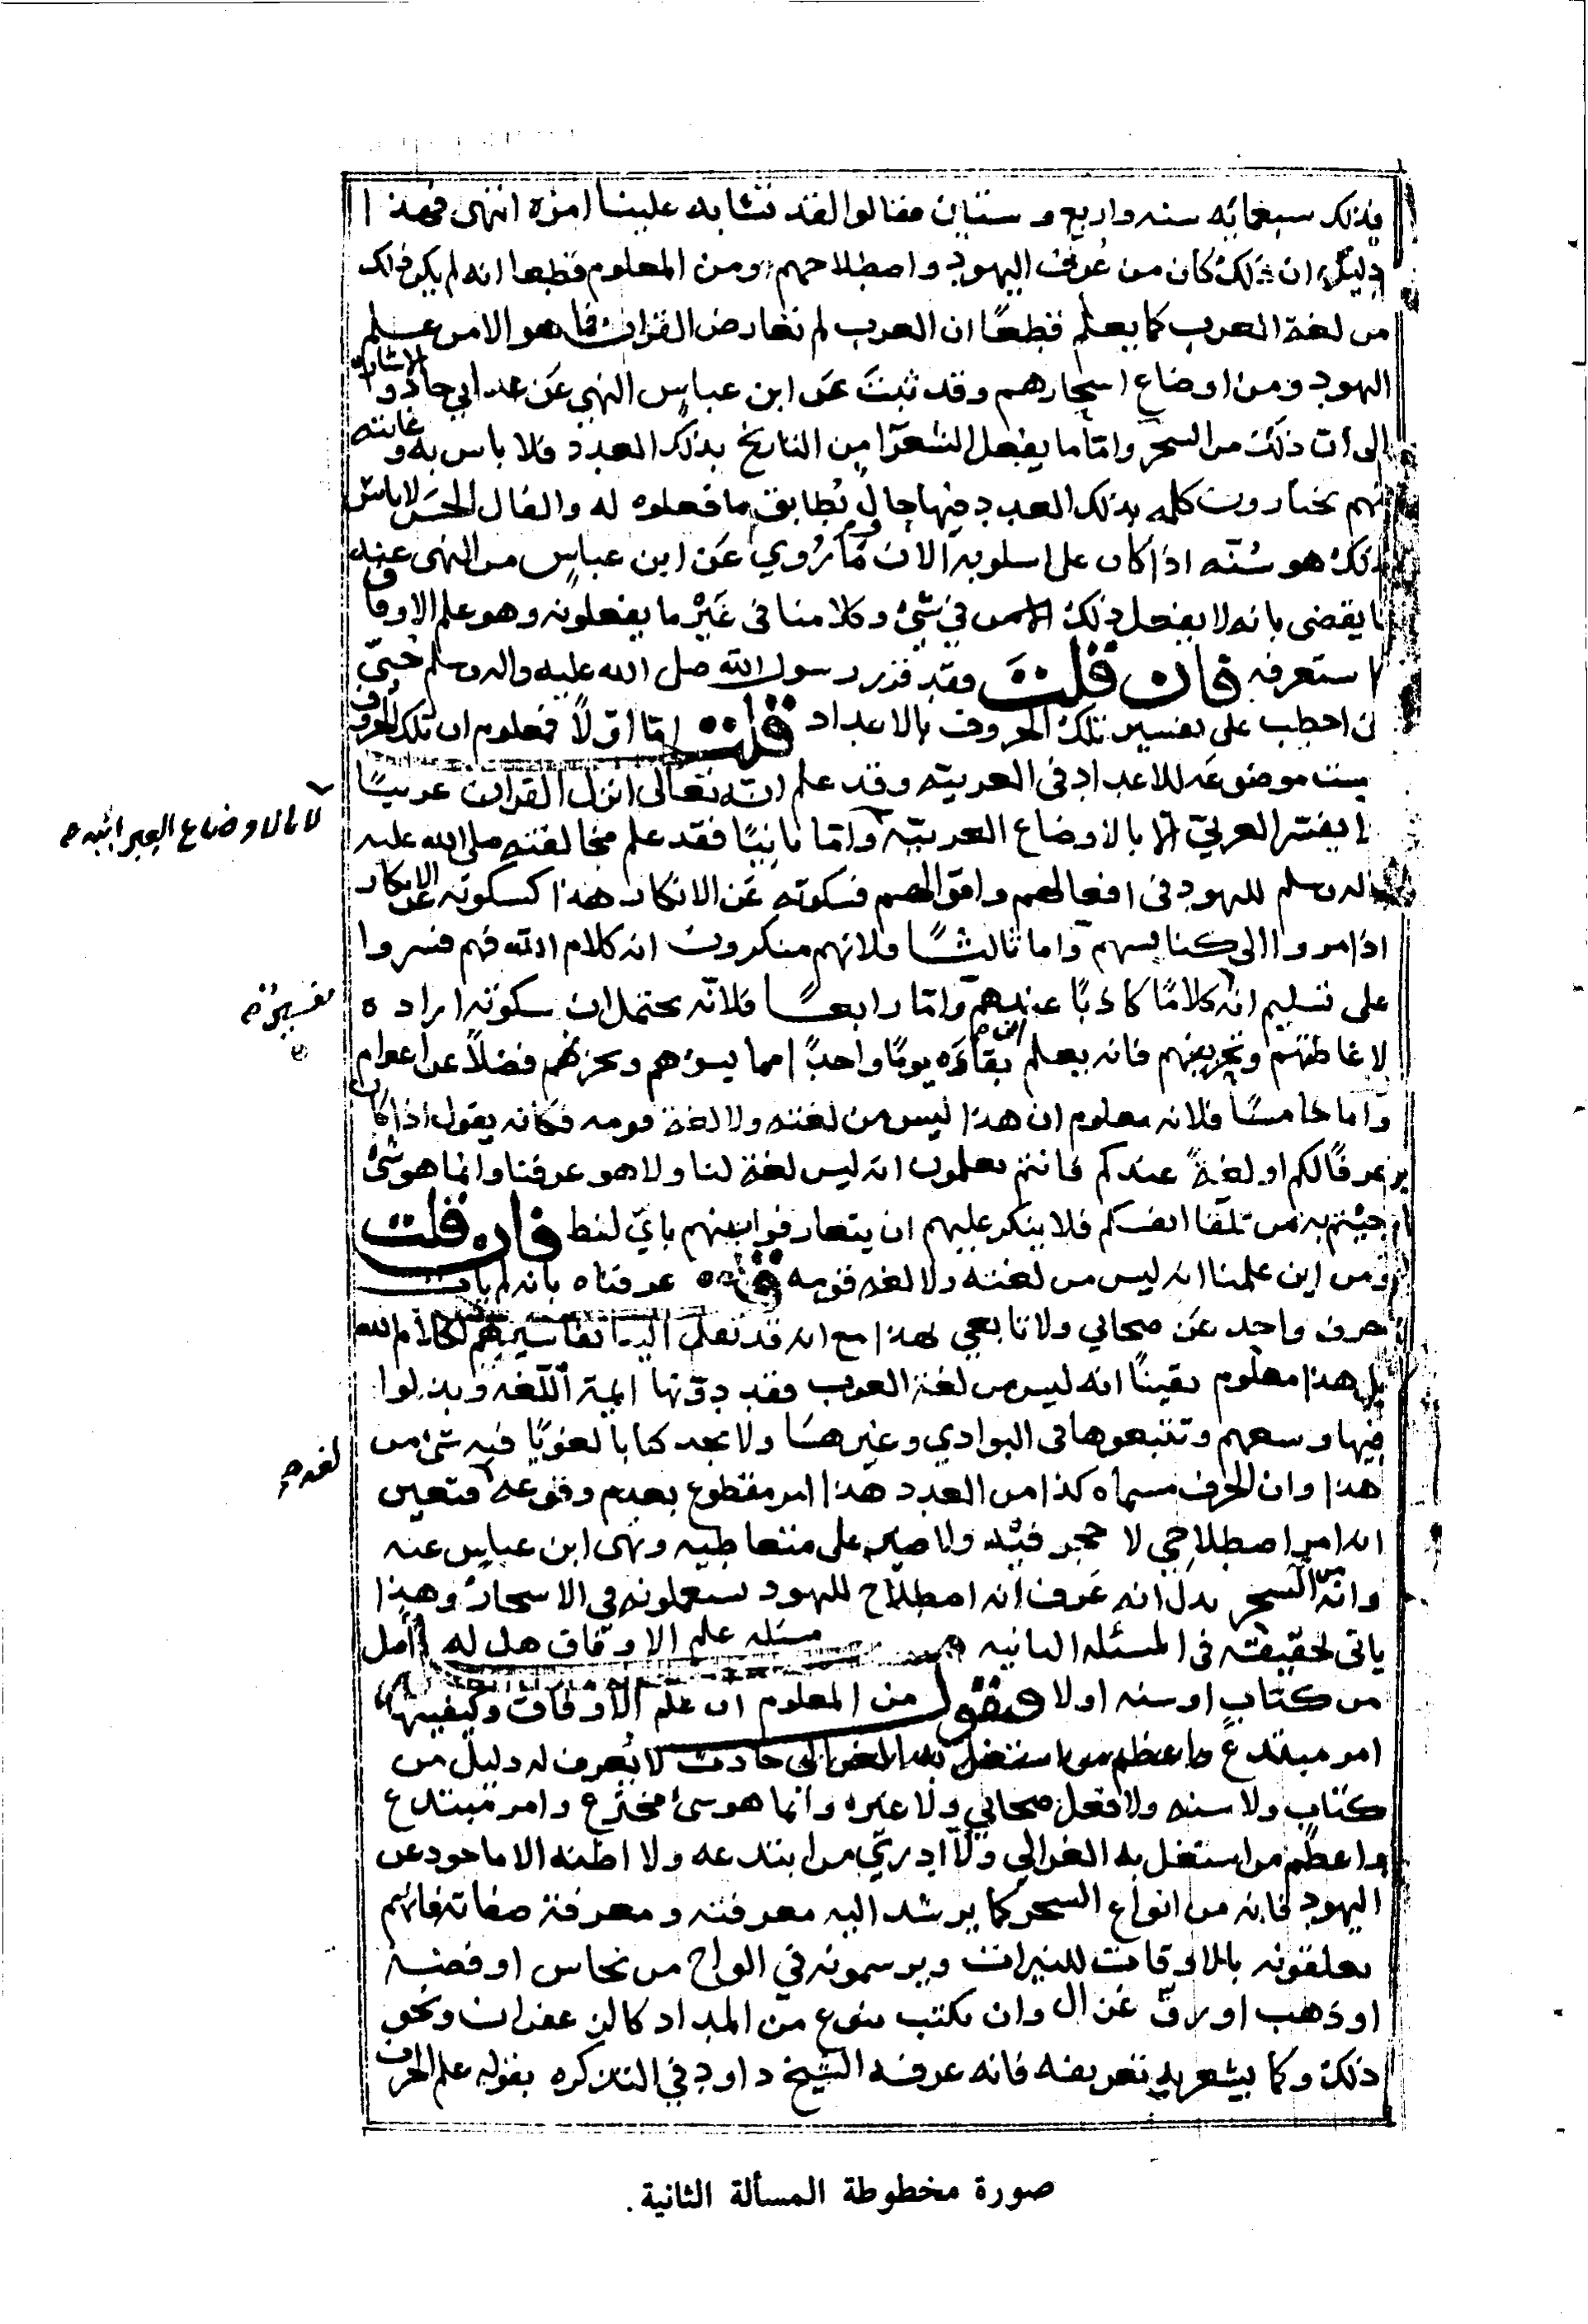 فذلك سبعمائه سنه واربع وستتان فقالوا لقد تشابه علينا امره انتهى فهذا
دليل ان ذلك كان من عُرف اليهود واصطلاحهم ومن المعلوم قطعا انه لم يكن ذلك
من لغة العرب كما يعلم قطعًا ان العرب لم تعارض القران فما هو الامن علم
اليهود ومن اوضاع اسحارهم وقد ثبتَ عَن ابن عباس النهي عَن عد ابي جاد والاشارة
الى ان ذلك من السحر وامّا ما يفعل الشعرَا من التاريخ بذلك العدد فلا باس به وغايته
انهم يختارون كلمه بذلك العدد فيها حال يُطابق ما فعلوه له والفال الحسَن لاباس
ذلك هو سُنّه اذا كان على اسلوبه الا ان ما رُوي عَن ابن عباس من النهى عنه
ما يقضى بانه لا يفعل ذلك في شئ وكلامنا فى غَيْر ما يفعلونه وهو علم الاوفاق
ستعرفه فان قلتَ فقد قرر رسول الله صلى الله عليه واله وسلم حُييّ
بن اخطب على تفسير تلك الحروف بالاعداد قلت امّا اوّلاً فمعلوم ان تلك الحروف
ليست موضوعَه للاعداد فى العربيّه وقد علم انّه تعالى انزل القران عربيًّا
لا يفسّر العربيّ الا بالاوضاع العربيّه وامّا ثانيًا فقد علم مخالفته صلى الله عليه
لا بالاوضاع العبرانيه صح
واله وسلم لليهود فى افعالهم واقوالهم فسكوته عَن الانكار هذا كسكوته عَن الانكار
اذا مروا الى كنايسهم وامّا ثالثًا فلانهم منكرون انه كلام الله فهم فسروا
على تسليم انه كلامًا كاذبًا عندهم وامّا رابعًا فلانّه يحتمل ان سكوته اراده
تفسيره
لاغاظتهم وتحزينهم فانه يعلم بقاءَه يومًا واحدًا مما يسؤهم ويحزنهم فضلاً عن اعوام
وامّا خامسًا فلانه معلوم ان هذا ليس من لغته ولا لغة قومه فكانه يقول اذا كان
عرفًا لكم او لغةً عندكم فانتم تعلمون انه ليس لغة لنا ولا هو عرفنا وانما هو شئ
جيتم به من تلقا انفسكم فلا ينكر عليهم ان يتعارفوا بينهم بايّ لفظ فان قلت
ومن اين علمنا انه ليس من لغته ولا لغه قومه قلت عرفناه بانه لم يات
حرف واحد عَن صحابي ولا تابعي بهذا مع انه قد نقل الينا تفاسيرهم لكلام الله
بل هذا معلوم يقينًا انه ليس من لغة العرب فقد دوّنها ايمة اللّغه وبذلوا
فيها وسعهم وتتبعوها فى البوادي وغيرها ولا نجد كتابا لغويًا فيه شئ من
لغه صح
هذا وان الحرف مسماه كذا من العدد هذا امر مقطوع بعدم وقوعه فتعين
انه امر اصطلاحي لا حجر فيه ولا ضير على متعاطيه ونهى ابن عباس عنه
وانه من السحر يدل انه عَرف انه اصطلاح لليهود يستعملونه في الاسحار وهذا
ياتي تحقيقه فى المسئله الثانيه مسئله علم الاوفاق هل له اصل
من كتاب او سنه اولا فنقول من المعلوم ان علم الاوفاق وكيفيتها
امر مبتدع واعظم من اشتغل به الغزالى حادث لا يُعرف له دليل من
كتاب ولا سنه ولا فعل صحابي ولا غيره وانما هو شئ مخترع وامر مبتدع
واعظم من اشتغل به الغزالي ولا ادريّ من ابتدعه ولا اظنه الا ماخوذ عن
اليهود فانه من انواع السحر كما يرشد اليه معرفته ومعرفة صفاته فانهم
يعلقونه بالاوقات للنيرات ويرسمونه في الواح من نحاس او فضه
او ذهب او رقّ غزال وان يكتب بنوع من المداد كالزعفران ونحو
ذلك وكما يشعر به تعريفه فانه عرفه الشيخ داود في التذكره بقوله علم الحرف
صورة مخطوطة المسألة الثانية.